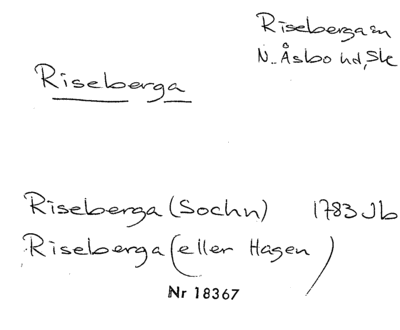 Riseberga sn
N. Åsbo hd, Sk
Riseberga
Riseberga (Sochn) 1783 Jb
Riseberga (eller Hagen)
Nr 18367